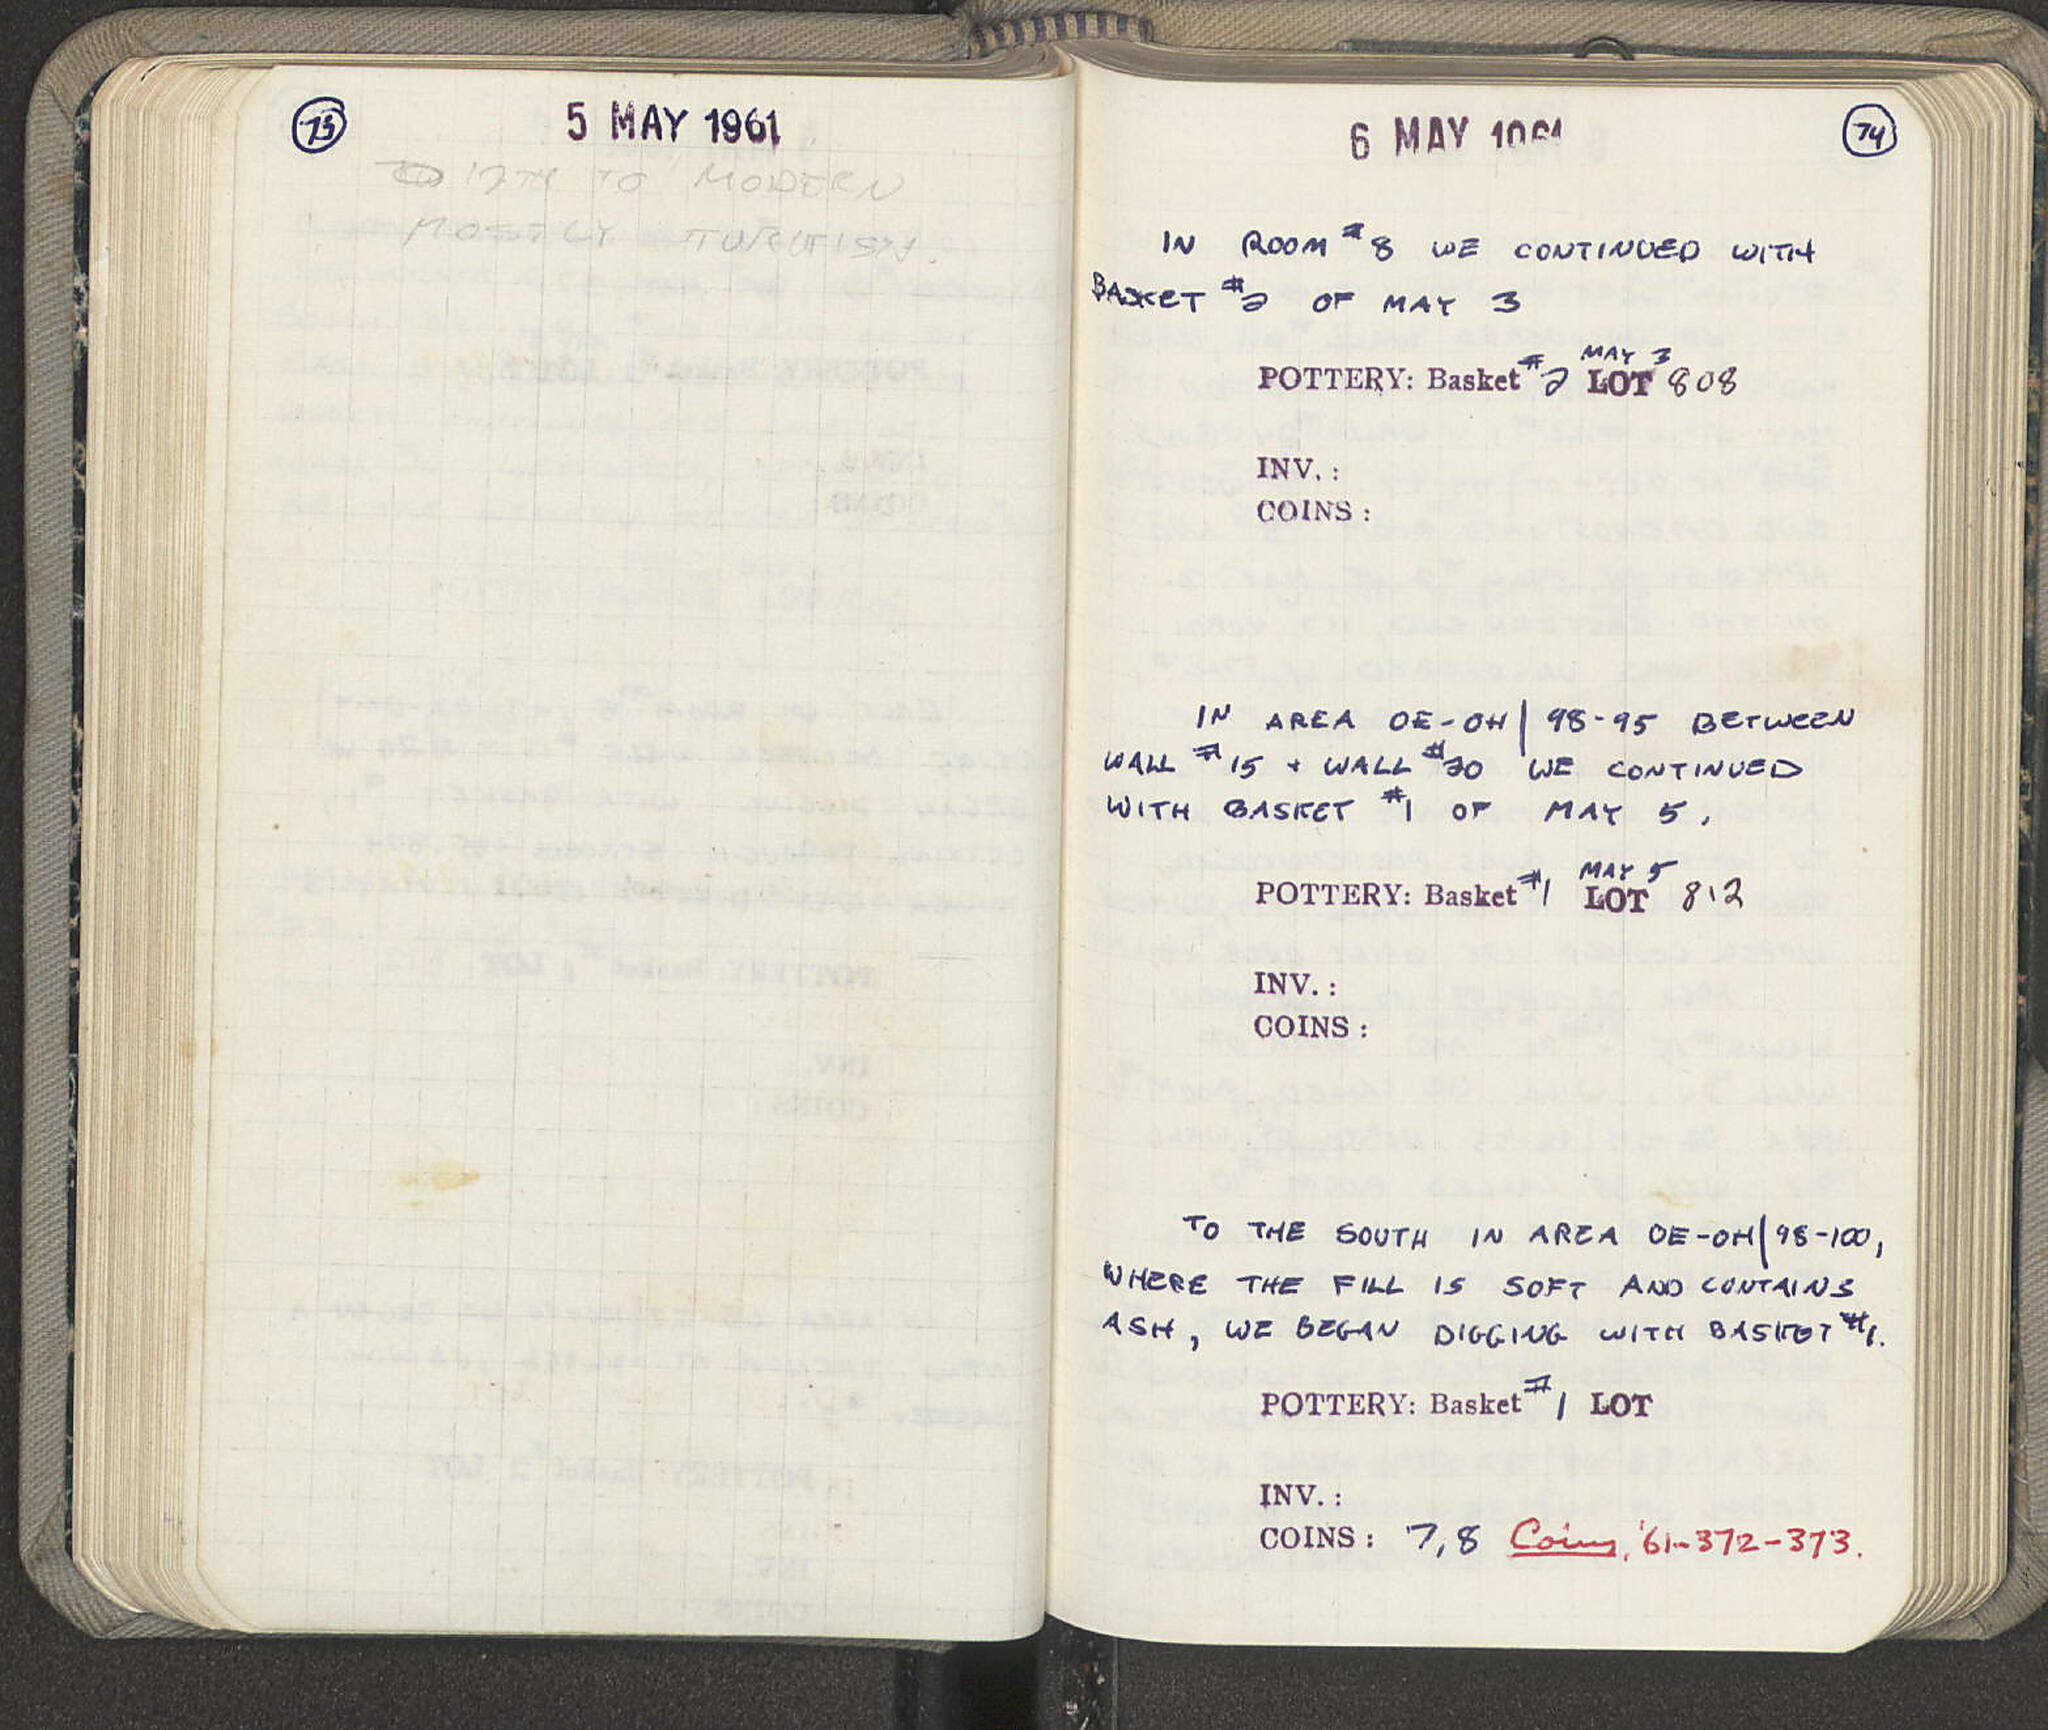 73
5 MAY 1961
17TH TO MODERN
MOSTLY TURKISH.
6 MAY 1961
74
IN ROOM #8 WE CONTINUED WITH
BASKET #2 OF MAY 3
MAY 3
POTTERY: Basket #2 LOT 808
INV.:
COINS:
IN AREA OE-OH/98-95 BETWEEN
WALL #15 + WALL #20 WE CONTINUED
WITH BASKET #1 OF MAY 5.
MAY 5
POTTERY: Basket #1 LOT 812
INV.:
COINS:
TO THE SOUTH IN AREA OE-OH/98-100,
WHERE THE FILL IS SOFT AND CONTAINS
ASH, WE BEGAN DIGGING WITH BASKET #1.
POTTERY: Basket #1 LOT
INV.:
COINS: 7,8 Coins, '61-372-373.